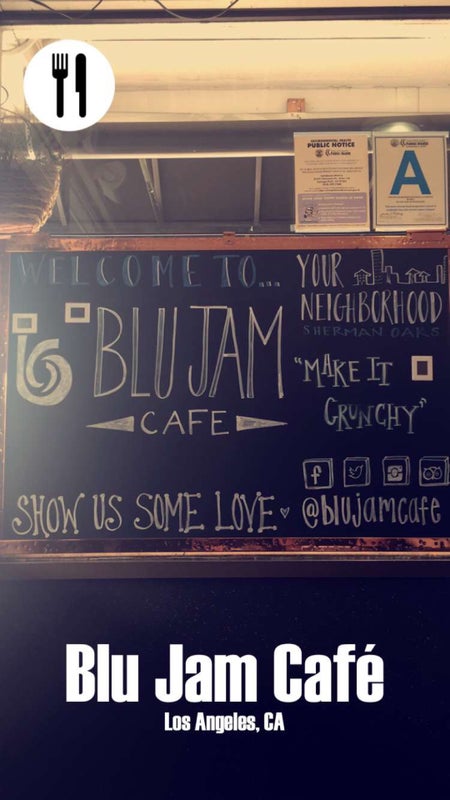 PUBLIC NOTICE
A
WELCOME TO...
BLU JAM
CAFE
YOUR
NEIGHBORHOOD
SHERMAN OAKS
"MAKE IT
CRUNCHY"
SHOW US SOME LOVE
@blujamcafe
Blu Jam Café
Los Angeles, CA